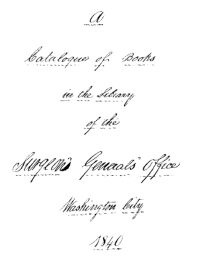 A
Catalogue of Books
in the Library
of the
Surgeon Generals' Office
Washington City
1840